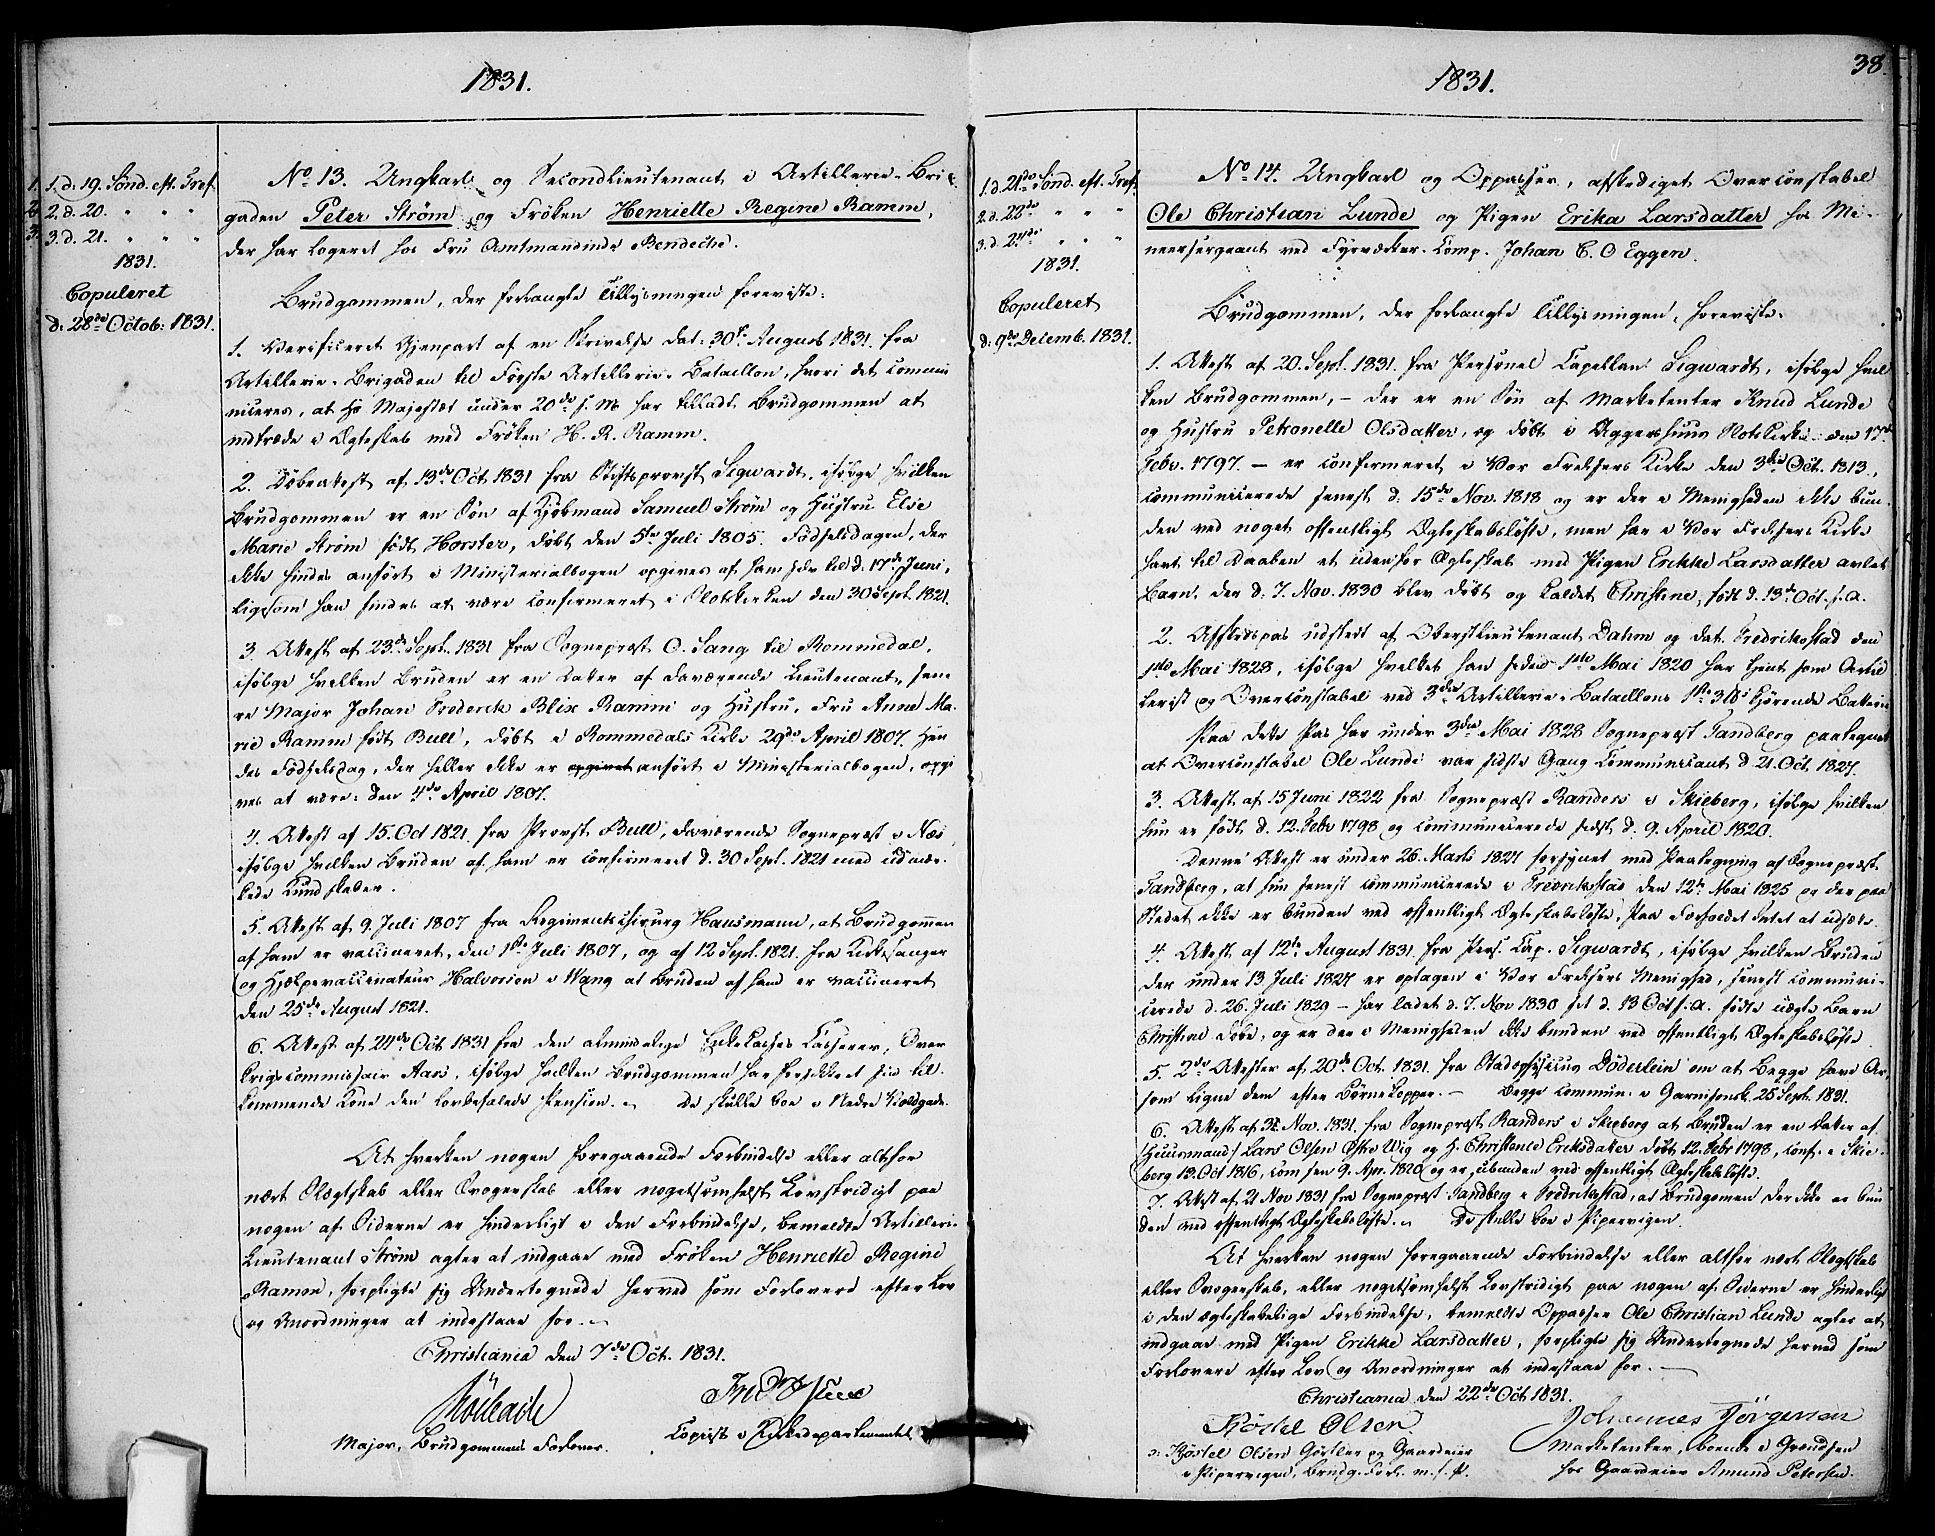 1831.
1. 1. d. 19. Sönd. eft. Tref.
2. 2. d. 20. " " "
3. 3. d. 21. " " "
1831.
Copuleret
d. 28de Octob: 1831.
No. 13. Ungkarl og Secondlieutenant i Artillerie-Bri-
gaden Peter Strøm og Frøken Henriette Regine Ramm,
der har logeret hos Fru Amtmandinde Bendeche.
Brudgommen, der forlangte Tillysningen foreviste:
1. Verificeret Gjenpart af en Skrivelse dat: 30te August 1831. fra
Artillerie-Brigaden til Første Artillerie-Bataillon, hvori det commu-
niceres, at Hs Majestæt under 20de s. M. har tilladt Brudgommen at
indtræde i Ægteskab med Frøken H. R. Ramm.
2. Døbeattest af 13de Oct 1831 fra Stiftsprovst Sigwardt, ifølge hvilken
Brudgommen er en Søn af Kjøbmand Samuel Strøm og Hustru Else
Marie Strøm født Horster, døbt den 5te Juli 1805. Fødselsdagen, der
ikke findes anført i Ministerialbogen opgives af ham selv til d. 17de Juni,
ligesom han findes at være confirmeret i Slotskirken den 30 Sept. 1821.
3. Attest af 23de Sept. 1831 fra Sognepræst O. Sang til Rommedal,
ifølge hvilken Bruden er en Datter af daværende Lieutenant, sene-
re Major Johan Frederik Blix Ramm og Hustru, Fru Anne Ma-
rie Ramm født Bull, døbt i Rommedals Kirke 29de April 1807. Hen-
des Fødselsdag, der heller ikke er opgivet anført i Ministerialbogen, opgi-
ves at være: den 4de April 1807.
4. Attest af 15. Oct 1821. fra Provst Bull, daværende Sognepræst i Næs,
ifølge hvilken Bruden af ham er confirmeret d. 30 Sept. 1821 med udmær-
kede Kundskaber.
5. Attest af 9. Juli 1807 fra Regimentschirurg Hausmann, at Brudgommen
af ham er vaccineret, den 1ste Juli 1807, og af 12 Sept. 1821. fra Kirkesanger
og Hjælpevaccinateur Halvorsen i Wang at Bruden af ham er vaccineret
den 25de August 1821.
6. Attest af 24de Oct 1831 fra den almindelige Enkekasses Casserer, Over-
krigscommissair Aars, ifølge hvilken Brudgommen har forsikkret sin til-
kommende Kone den lovbefalede Pension. — De skulle boe i Nedre Voldgade.
At hverken nogen foregaaende Forbindelse eller altfor
nært Slægtskab eller Svogerskab eller nogetsomhelst Lovstridigt paa
nogen af Siderne er hinderligt i den Forbindelse, bemeldte Artillerie
Lieutenant Strøm agter at indgaae med Frøken Henriette Regine
Ramm, forpligte sig Undertegnede herved som Forlovere efter Lov
og Anordninger at indestaae for. —
Christiania den 7de Oct. 1831.
Major, Brudgommens Forlover.
Copist i Kirkedepartementet
1831.
38.
1. d. 21de Sönd. eft. Tref.
2. d. 22de " " "
3. d. 24de " " "
1831.
Copuleret
d: 9de Decemb. 1831.
No. 14. Ungkarl og Oppasser, afskediget Overconstabel
Ole Christian Lunde og Pigen Erika Larsdatter hos Mi-
neersergeant ved Fyrværker-Comp. Johan C. O Eggen.
Brudgommen, der forlangte Tillysningen, foreviste:
1. Attest af 20. Sept. 1831. fra Personel Capellan Sigwardt, ifølge hvil-
ken Brudgommen, — der er en Søn af Marketenter Knud Lunde
og Hustru Petronelle Olsdatter, og døbt i Aggershuus Slotskirke den 17de
Febr. 1797. — er confirmeret i Vor Frelsers Kirke den 3die Oct. 1813,
communicerede senest d. 15de Nov. 1818 og er der i Menigheden ikke bun-
den ved noget offentligt Ægteskabsløfte, men har i Vor Frelsers Kirke
havt til Daaben et udenfor Ægteskab med Pigen Erikke Larsdatter avlet
Barn, der d. 7. Nov. 1830 blev døbt og kaldet Christine, født d. 13de Oct. s. A.
2. Afskedspas udstedt af Oberstlieutenant Dahm og dat. Fredrikstad den
1ste Mai 1828, ifølge hvilket han siden 1ste Mai 1820 har tjent som Artil-
lerist og Overconstabel ved 3die Artillerie-Bataillons 1ste 3 lb's kjørende Batteri.
Paa dette Pas har under 3die Mai 1828 Sognepræst Tandberg paategnet
at Overconstabel Ole Lunde var sidste Gang Communicant d. 21. Oct. 1827.
3. Attest af 15 Juni 1822 fra Sognepræst Randers i Skieberg, ifølge hvilken
hun er født d. 12. Febr 1798 og communicerede sidst d. 9. April 1820.
Denne Attest er under 26. Marts 1827 forsynet med Paategning af Sognepræst
Tandberg, at hun senest communicerede i Fredriksstad den 12te Mai 1825 og der paa
Stedet ikke er bunden ved offentligt Ægteskabsløfte, paa Forholdet Intet at udsætte.
4. Attest af 12te August 1831. fra Pers. Cap. Sigwardt, ifølge hvilken Bruden
der under 13 Juli 1827 er optagen i Vor Frelsers Menighed, senest communi-
cerede d. 26. Juli 1829 — har ladet d. 7. Nov 1830 sit d. 13 Oct s. A. fødte uægte Barn
Christine døbe, og er der i Menigheden ikke bunden ved offentligt Ægteskabsløfte.
5. 2de Attester af 20de Oct. 1831. fra Stadsphysicus Döderlein om at Begge have Ar,
som ligne dem efter Børnekopper. — Begge commun. i Garnisonsk. 25 Sept. 1831.
6. Attest af 21. Nov. 1831. fra Sognepræst Randers i Skieberg at Bruden er en Datter af
Huusmand Lars Olsen Østre Wig og H. Christence Eriksdatter døbt 12. Febr 1798, conf. i Skie-
berg 13. Oct 1816, com sen 9. Apr. 1820 og er ubunden ved offentligt Ægteskabsløfte.
7. Attest af 21 Nov 1831 fra Sognepræst Tandberg i Fredriksstad, at Brudgommen der ikke er bun-
den ved offentligt Ægteskabsløfte. — De skulle boe i Pipervigen.
At hverken nogen foregaaende Forbindelse eller altfor nært Slægtskab
eller Svogerskab, eller nogetsomhelst Lovstridigt paa nogen af Siderne er hinderligt
i den ægteskabelige Forbindelse, bemeldte Oppasser Ole Christian Lunde agter at
indgaae med Pigen Erikke Larsdatter, forpligte sig Undertegnede herved som
Forlovere efter Lov og Anordninger at indestaae for. —
Christiania den 22de Oct 1831.
Köstel Olsen
Johannes Jörgensen
Köstel Olsen Gørtler og Gaardeier
i Pipervigen, Brudg. Forl. m. f. P.
Marketenter, boende i Grændsen
hos Gaardeier Amund Petersen.